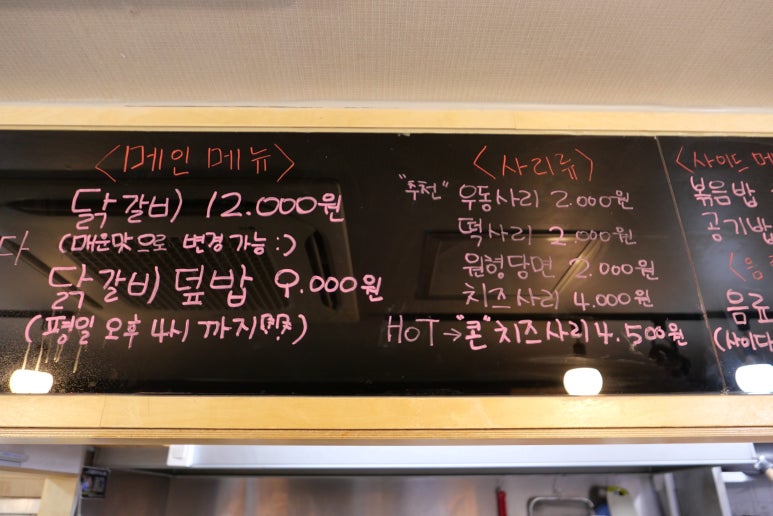 <메인 메뉴>
닭갈비 12.000원
다
(매운맛으로 변경가능:)
닭갈비 덮밥 9.000원
(평일 오후 4시 까지!!)
<사리류>
"추천" 우동사리 2.000원
떡사리 2.000원
원형당면 2.000원
치즈사리 4.000원
HOT → "콘"치즈사리 4.500원
<사이드 메
볶음밥
공기밥
<음
음료
(사이다